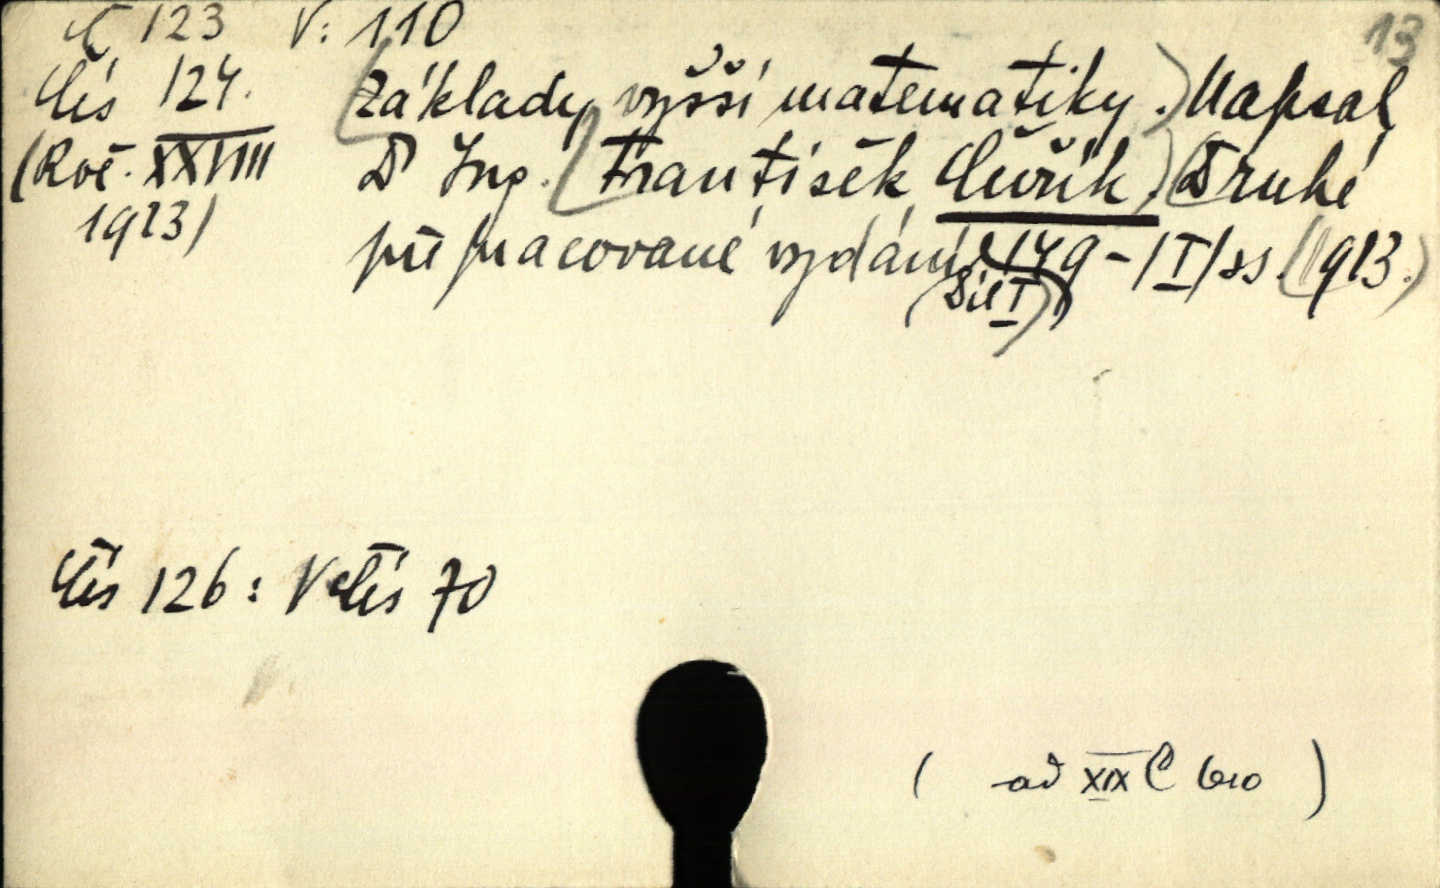 Č 123 V: 110
13
Čís 124. (Základy vyšší matematiky.) Napsal
(Roč. XXVIII Dr Ing. (František Čuřík.) (Druhé
1913) přepracované vydání 479-/I/ss. (1913.)
(Díl I)
Čís 126: V Čís 70
( ad XIX C 610 )